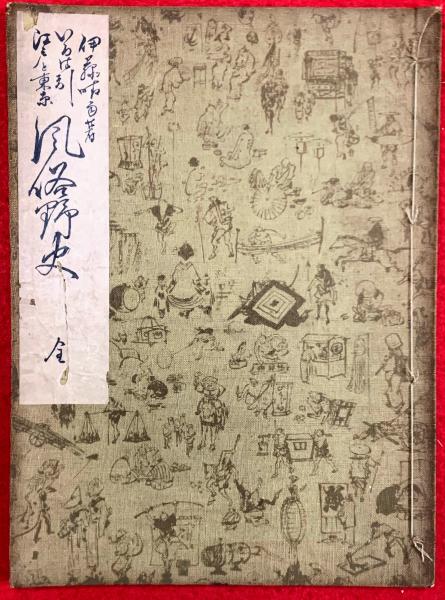 伊藤晴雨著
いろは引
江戸と東京
風俗野史
全